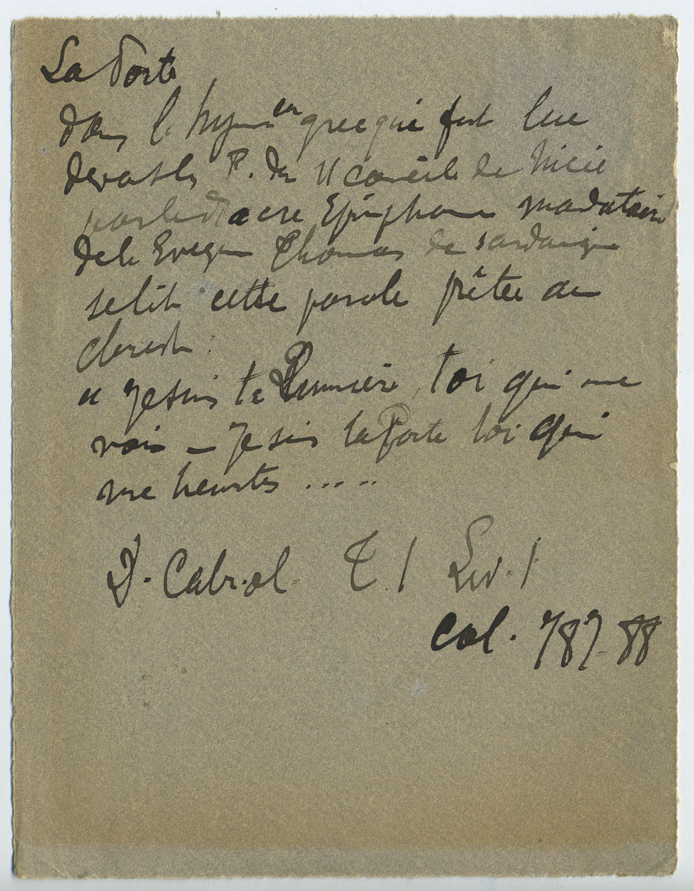 La Porte
dans l'hymne en grec qui fut lue
devant les P. du II concile de Nicée
par le diacre Epiphane mandataire
de l'Eveque Thomas de Sardaigne
se lit cette parole prêtée au
Christ :
" Je suis ta Lumière, toi qui me
vois — Je suis la Porte toi qui
me heurtes .....
D. Cabrol T 1 Liv. 1
Col. 787-88